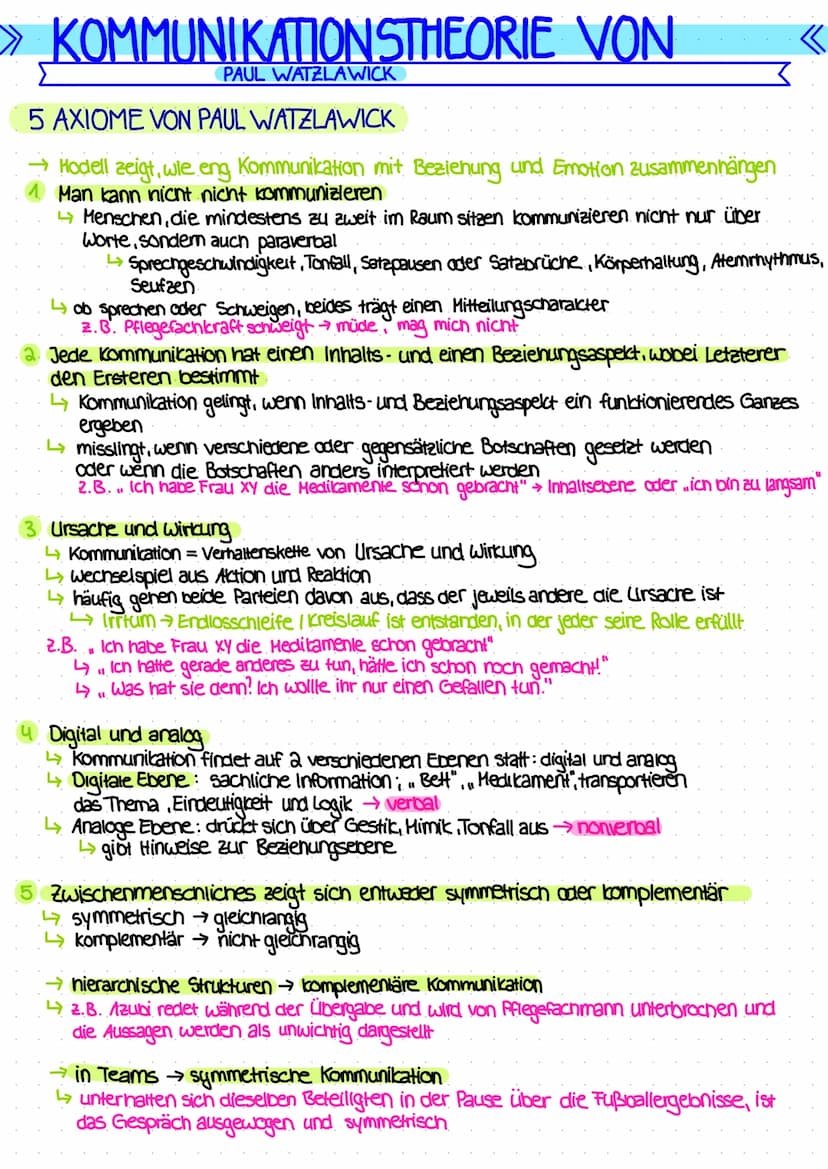 KOMMUNIKATIONSTHEORIE VON
PAUL WATZLAWICK
5 AXIOME VON PAUL WATZLAWICK
→ Modell zeigt, wie eng Kommunikation mit Beziehung und Emotion zusammenhängen
1 Man kann nicht nicht kommunizieren
↳ Menschen, die mindestens zu zweit im Raum sitzen kommunizieren nicht nur über
Worte, sondern auch paraverbal
↳ Sprechgeschwindigkeit, Tonfall, Satzpausen oder Satzbrüche, Körperhaltung, Atemrhythmus,
Seufzen
↳ ob sprechen oder Schweigen, beides trägt einen Mitteilungscharakter
z.B. Pflegefachkraft schweigt → müde, mag mich nicht
2 Jede Kommunikation hat einen Inhalts- und einen Beziehungsaspekt, wobei Letzterer
den Ersteren bestimmt
↳ Kommunikation gelingt, wenn Inhalts- und Beziehungsaspekt ein funktionierendes Ganzes
ergeben
↳ misslingt, wenn verschiedene oder gegensätzliche Botschaften gesetzt werden
oder wenn die Botschaften anders interpretiert werden
z.B. „Ich habe Frau XY die Medikamente schon gebracht" → Inhaltsebene oder „ich bin zu langsam"
3 Ursache und Wirkung
↳ Kommunikation = Verhaltenskette von Ursache und Wirkung
↳ Wechselspiel aus Aktion und Reaktion
↳ häufig gehen beide Parteien davon aus, dass der jeweils andere die Ursache ist
↳ Irrtum → Endlosschleife / Kreislauf ist entstanden, in der jeder seine Rolle erfüllt
z.B. „Ich habe Frau XY die Medikamente schon gebracht"
↳ „Ich hatte gerade anderes zu tun, hätte ich schon noch gemacht!"
↳ „Was hat sie denn? Ich wollte ihr nur einen Gefallen tun."
4 Digital und analog
↳ Kommunikation findet auf 2 verschiedenen Ebenen statt: digital und analog
↳ Digitale Ebene: sachliche Information; „Bett", „Medikament", transportieren
das Thema, Eindeutigkeit und Logik → verbal
↳ Analoge Ebene: drückt sich über Gestik, Mimik, Tonfall aus → nonverbal
↳ gibt Hinweise zur Beziehungsebene
5 Zwischenmenschliches zeigt sich entweder symmetrisch oder komplementär
↳ symmetrisch → gleichrangig
↳ komplementär → nicht gleichrangig
→ hierarchische Strukturen → komplementäre Kommunikation
↳ z.B. Azubi redet während der Übergabe und wird von Pflegefachmann unterbrochen und
die Aussagen werden als unwichtig dargestellt
→ in Teams → symmetrische Kommunikation
↳ unterhalten sich dieselben Beteiligten in der Pause über die Fußballergebnisse, ist
das Gespräch ausgewogen und symmetrisch